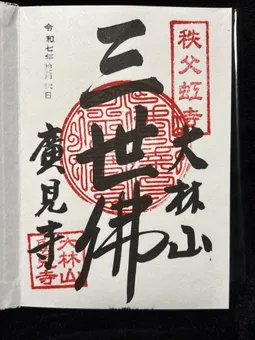 秩父虹寺
大林山
三世佛
廣見寺
令和七年
大林山
廣見寺